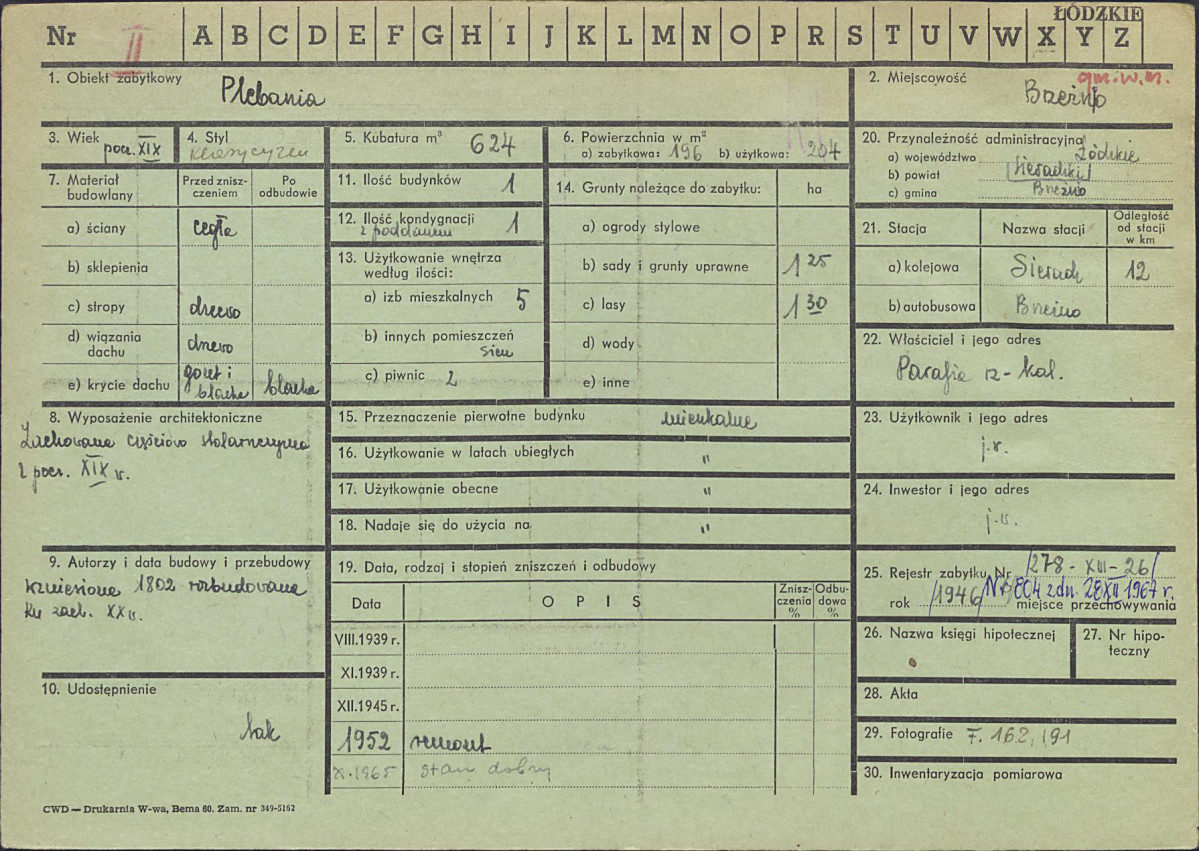 ŁÓDZKIE
Nr II A B C D E F G H I J K L M N O P R S T U V W X Y Z
1. Obiekt zabytkowy Plebania
2. Miejscowość Brzeźnio
gm. w. m.
3. Wiek pocz. XIX
4. Styl klasycyzm
5. Kubatura m³ 624
6. Powierzchnia w m²
a) zabytkowa: 196 b) użytkowa: 204
20. Przynależność administracyjna
a) województwo Łódzkie
b) powiat Sieradzki
c) gmina Brzeźnio
7. Materiał budowlany
Przed zniszczeniem
Po odbudowie
a) ściany cegła
b) sklepienia
c) stropy drzewo
d) wiązania dachu drzewo
e) krycie dachu gont i blacha blacha
11. Ilość budynków 1
12. Ilość kondygnacji 1
z poddaszem
13. Użytkowanie wnętrza
według ilości:
a) izb mieszkalnych 5
b) innych pomieszczeń
sień
c) piwnic 2
14. Grunty należące do zabytku: ha
a) ogrody stylowe
b) sady i grunty uprawne 1 25
c) lasy 1 30
d) wody
e) inne
21. Stacja
Nazwa stacji
Odległość
od stacji
w km
a) kolejowa Sieradz 12
b) autobusowa Brzeźno
22. Właściciel i jego adres
Parafia rz-kat.
8. Wyposażenie architektoniczne
Zachowana częściowo stolarszczyzna
z pocz. XIX w.
15. Przeznaczenie pierwotne budynku mieszkalne
16. Użytkowanie w latach ubiegłych "
17. Użytkowanie obecne "
18. Nadaje się do użycia na "
23. Użytkownik i jego adres
j.w.
24. Inwestor i jego adres
j.w.
9. Autorzy i data budowy i przebudowy
wzniesiona 1802 rozbudowana
ku zach. XX w.
10. Udostępnienie
tak
19. Data, rodzaj i stopień zniszczeń i odbudowy
Data
OPIS
Zniszczenia %
Odbudowa %
VIII.1939 r.
XI.1939 r.
XII.1945 r.
1952 remont
X.1965 stan dobry
25. Rejestr zabytku Nr /278-XIII-26/
rok /1946/ Nr 804 z dn. 28 XII 1967 r.
miejsce przechowywania
26. Nazwa księgi hipotecznej
27. Nr hipoteczny
28. Akta
29. Fotografie F. 162, 191
30. Inwentaryzacja pomiarowa
CWD — Drukarnia W-wa, Bema 60. Zam. nr 349-5162